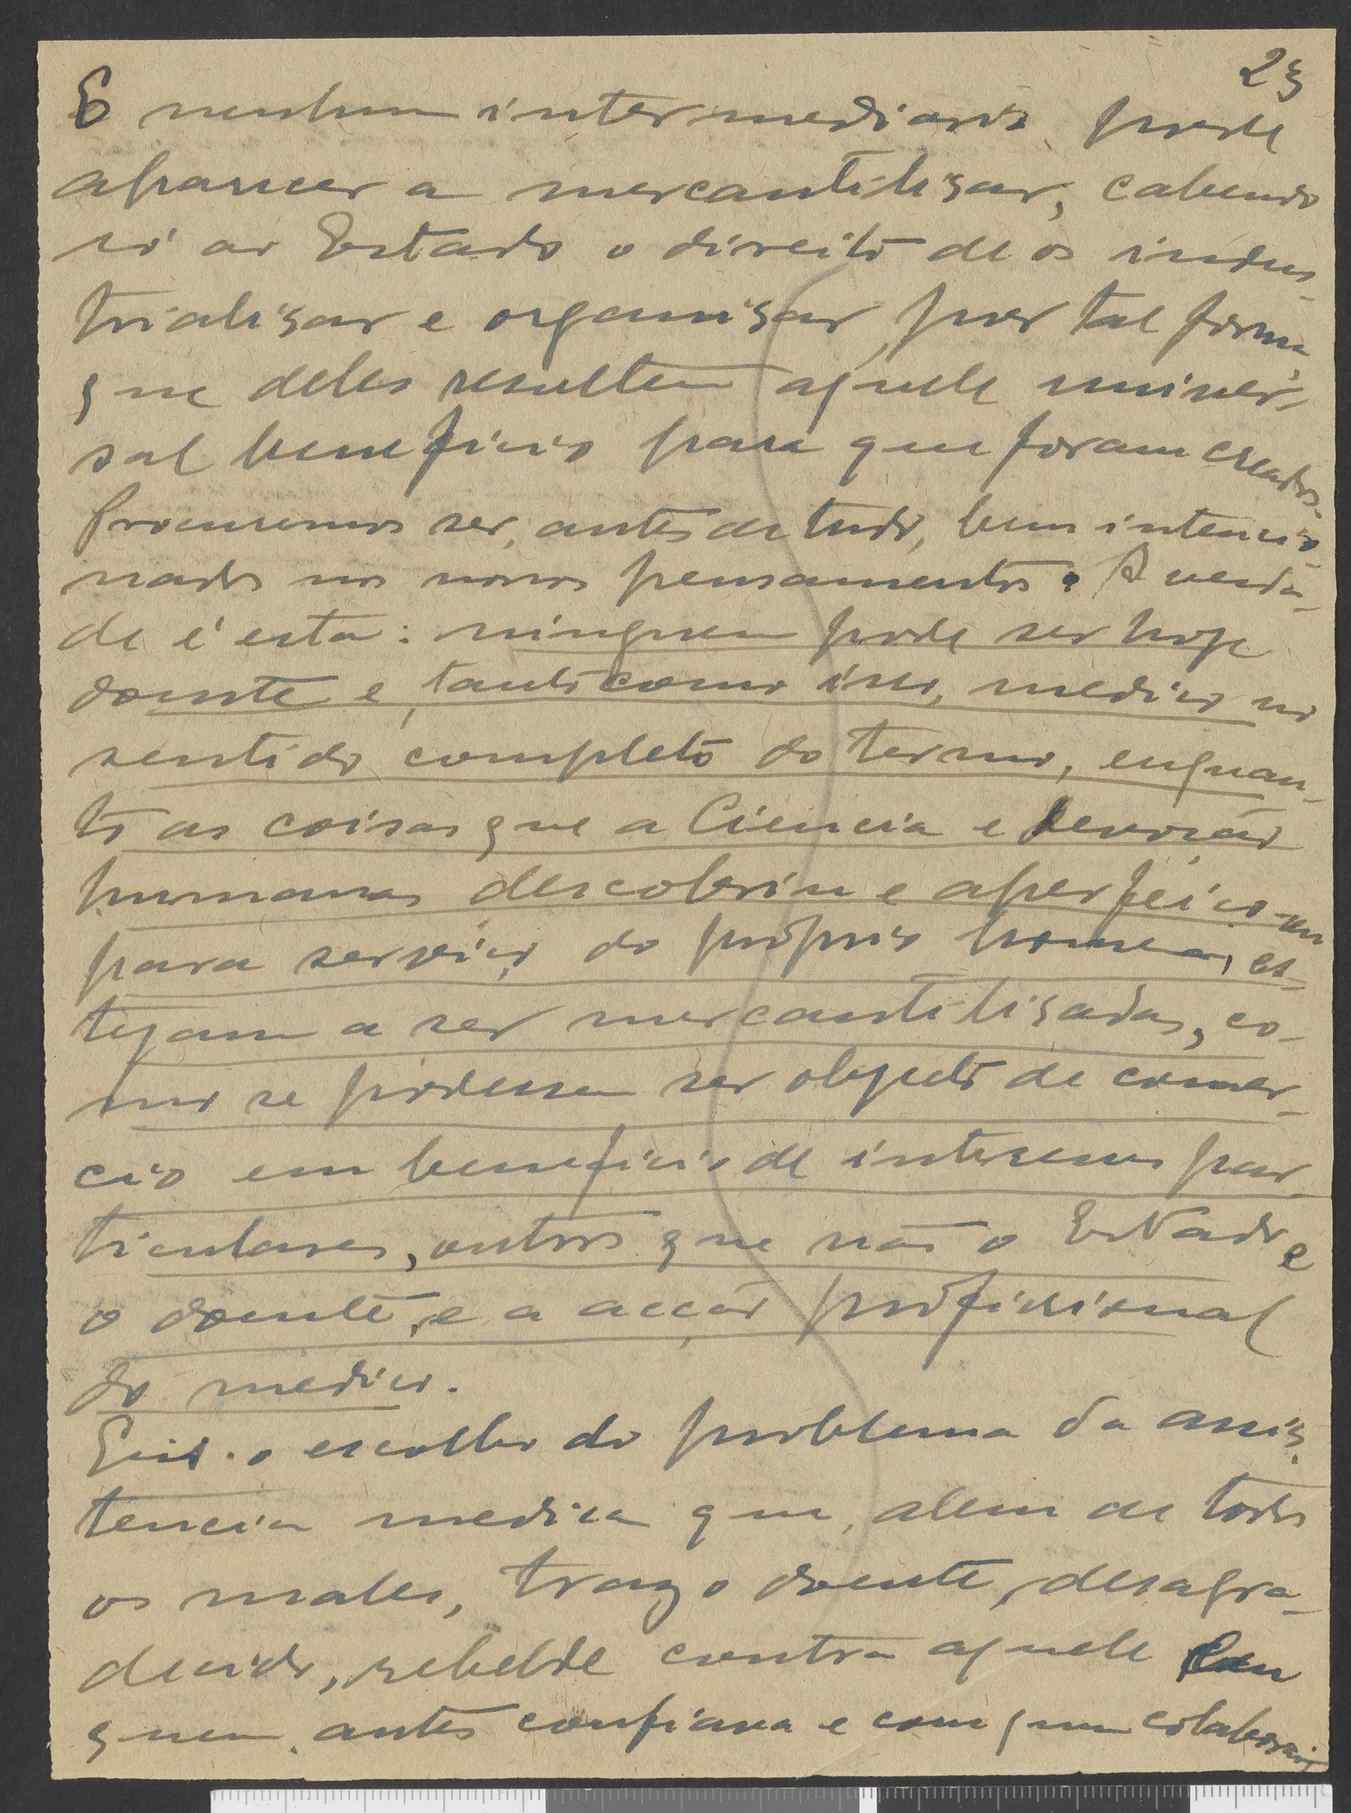 23
E nenhum intermediario pode
aparecer a mercantilisar, cabendo
só ao Estado o direito de os indus-
trialisar e organisar, por tal forma,
que deles resultem aquele univer-
sal beneficio para que foram creados.
Procuremos ser, antes de tudo, bem intencio-
nados nos nossos pensamentos. A verda-
de é esta: ninguem pode ser hoje
doente e, tanto como isso, medico no
sentido completo do termo, enquan-
to as coisas que a Ciencia e devoção
humanas descobriu e aperfeiçoou
para serviço do proprio homem, es-
tejam a ser mercantilisadas, co-
mo se podessem ser objecto de comer-
cio em beneficio de interesses par-
ticulares, outros que não o Estado e
o doente, e a acção profissional
do medico.
Eis o escolho do problema da assis-
tencia medica que, alem de todos
os males, traz o doente, desagra-
decido, rebelde contra aquele em
quem antes confiava e com quem colaborava